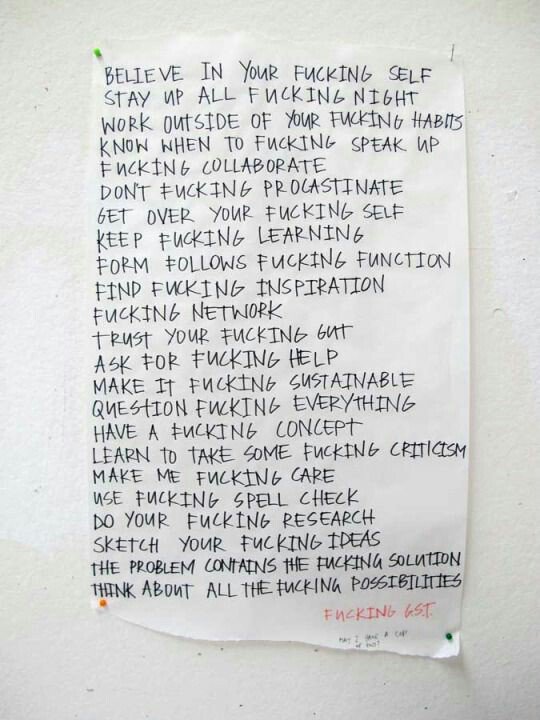 BELIEVE IN YOUR FUCKING SELF
STAY UP ALL FUCKING NIGHT
WORK OUTSIDE OF YOUR FUCKING HABITS
KNOW WHEN TO FUCKING SPEAK UP
FUCKING COLLABORATE
DON'T FUCKING PROCASTINATE
GET OVER YOUR FUCKING SELF
KEEP FUCKING LEARNING
FORM FOLLOWS FUCKING FUNCTION
FIND FUCKING INSPIRATION
FUCKING NETWORK
TRUST YOUR FUCKING GUT
ASK FOR FUCKING HELP
MAKE IT FUCKING SUSTAINABLE
QUESTION FUCKING EVERYTHING
HAVE A FUCKING CONCEPT
LEARN TO TAKE SOME FUCKING CRITICISM
MAKE ME FUCKING CARE
USE FUCKING SPELL CHECK
DO YOUR FUCKING RESEARCH
SKETCH YOUR FUCKING IDEAS
THE PROBLEM CONTAINS THE FUCKING SOLUTION
THINK ABOUT ALL THE FUCKING POSSIBILITIES
FUCKING G.S.T.
MAY I HAVE A